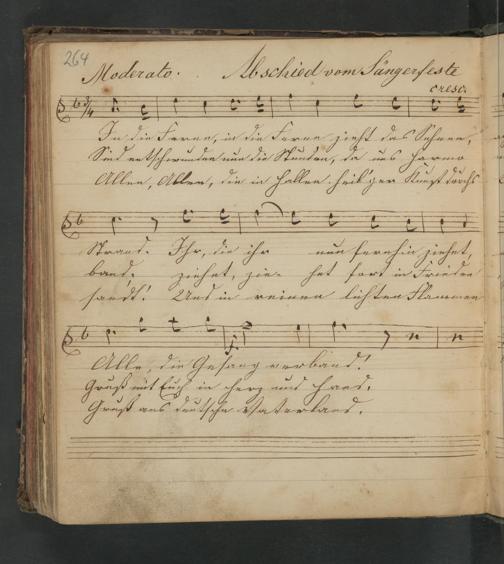 264
Moderato. Abschied vom Sängerfeste
cresc.
3/4
In die Ferne, in die Ferne zieht das Sehnen,
Sind entschwunden nun die Stunden, da uns Harmo
Allen, Allen, die in Hallen heil'ger Kunst durchs
Strand. Ihr, die ihr nun fernhin ziehet,
band; ziehet, zie- het fort in Frieden
fandt! Und in reinen lichten Flammen
Alle, die Gesang verband!
Gruß mit Euch in Herz und Hand.
Gruß aus deutsche Vaterland.